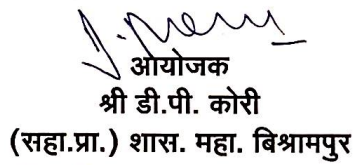 आयोजक
श्री डी.पी. कोरी
(सहा.प्रा.) शास. महा. बिश्रामपुर